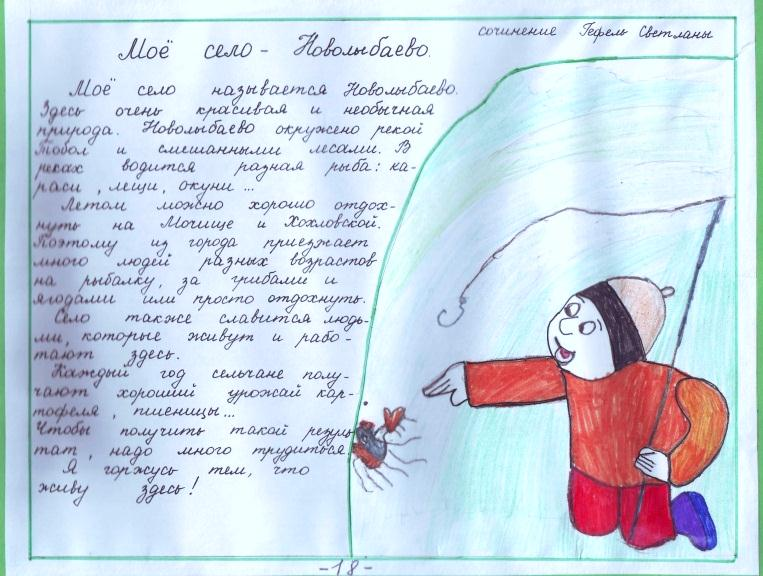 сочинение Гефель Светланы
Моё село - Новолыбаево.
Моё село называется Новолыбаево.
Здесь очень красивая и необычная
природа. Новолыбаево окружено рекой
Тобол и смешанными лесами. В
реках водится разная рыба: ка-
раси, лещи, окуни ...
Летом можно хорошо отдох-
нуть на Мочище и Хохловской.
Поэтому из города приезжает
много людей разных возрастов
на рыбалку, за грибами и
ягодами или просто отдохнуть.
Село также славится людь-
ми, которые живут и рабо-
тают здесь.
Каждый год сельчане полу-
чают хороший урожай кар-
тофеля, пшеницы...
Чтобы получить такой резуль
тат, надо много трудиться.
Я горжусь тем, что
живу здесь!
-18-